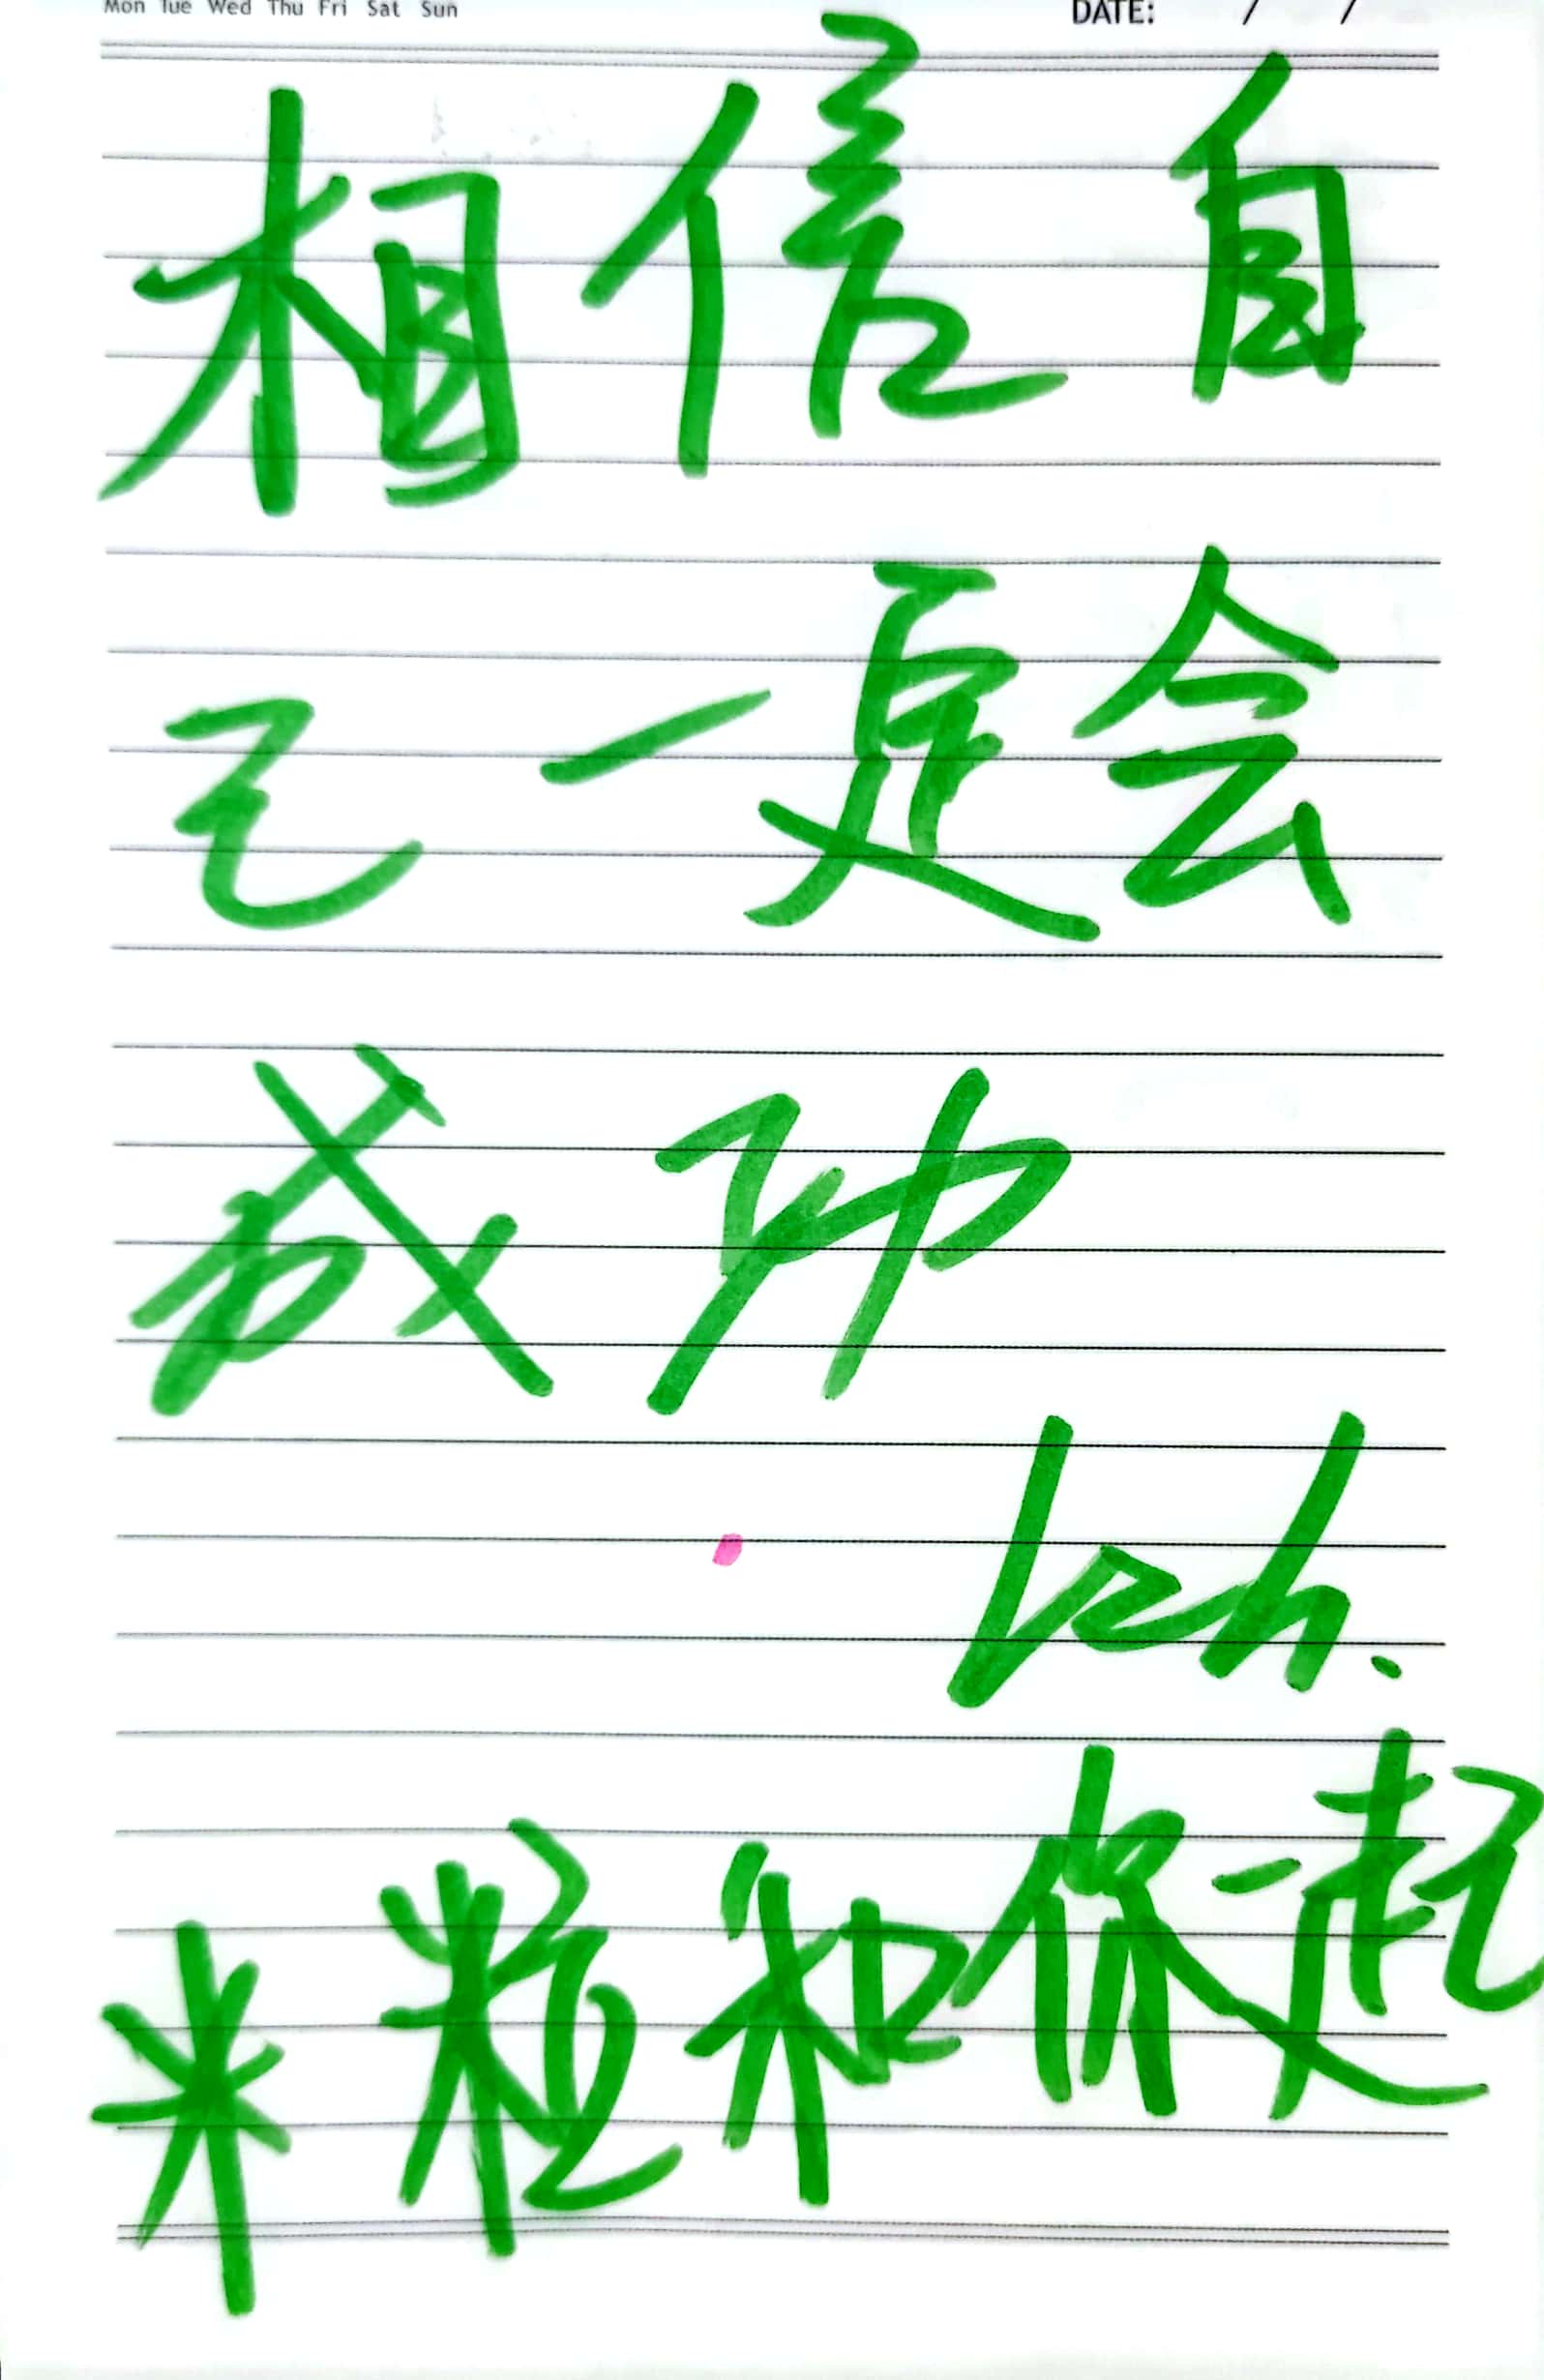 Mon Tue Wed Thu Fri Sat Sun DATE: / /
相信自
己一定会
成功
米粒和你一起